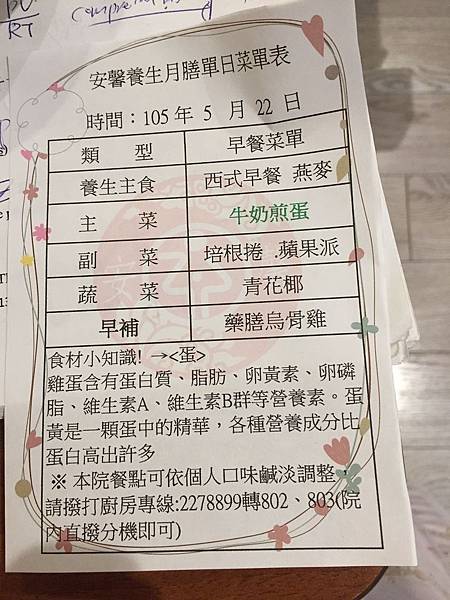 RT
安馨養生月膳單日菜單表
時間：105 年 5 月 22 日
類 型 早餐菜單
養生主食 西式早餐 燕麥
主 菜 牛奶煎蛋
副 菜 培根捲 .蘋果派
蔬 菜 青花椰
早補 藥膳烏骨雞
食材小知識! →<蛋>
雞蛋含有蛋白質、脂肪、卵黃素、卵磷
脂、維生素A、維生素B群等營養素。蛋
黃是一顆蛋中的精華，各種營養成分比
蛋白高出許多
※ 本院餐點可依個人口味鹹淡調整，
請撥打廚房專線:2278899轉802、803(院
內直撥分機即可)